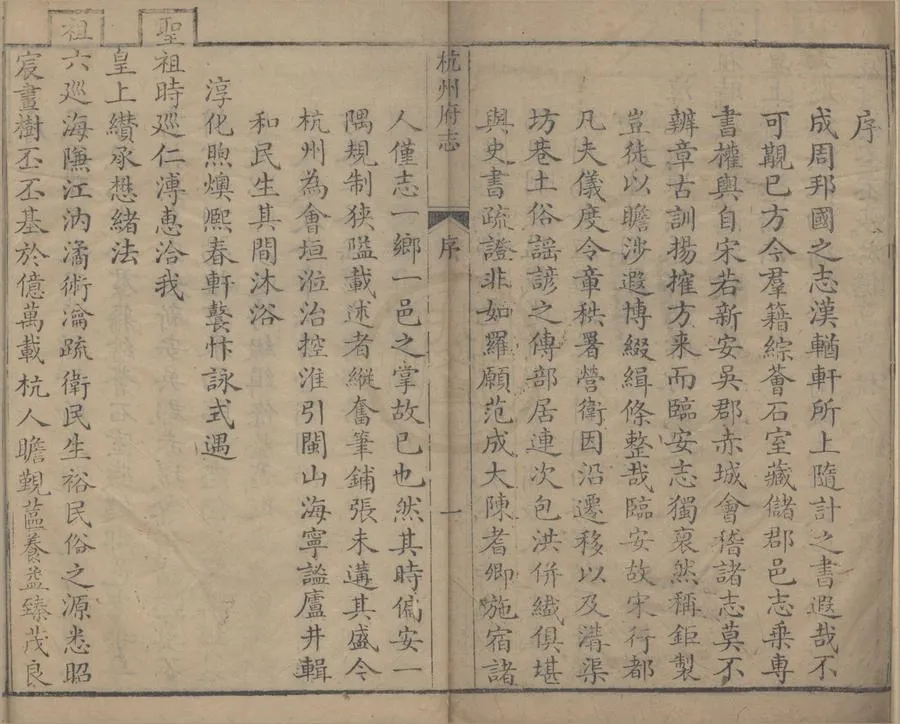 序
成周邦國之志漢輶軒所上隨計之書遐哉不
可覯已方今羣籍綜薈石室藏儲郡邑志乘專
書權輿自宋若新安吳郡赤城會稽諸志莫不
辨章古訓揚搉方来而臨安志獨裒然稱鉅製
豈徒以贍涉遐博綴緝條整哉臨安故宋行都
凡夫儀度令章秩署營衛因沿遷移以及溝渠
坊巷土俗謡諺之傳部居連次包洪併纖俱堪
與史書疏證非如羅願范成大陳耆卿施宿諸
杭州府志
序
一
人僅志一鄉一邑之掌故已也然其時偏安一
隅規制狹隘載述者縱奮筆鋪張未遘其盛今
杭州為會垣涖治控淮引閩山海寧謐廬井輯
和民生其間沐浴
淳化煦燠熈春軒鼚忭詠式遇
聖祖時巡仁漙惠洽我
皇上纘承懋緒法
祖六巡海隒江汭潏術瀹疏衛民生裕民俗之源悉昭
宸畫樹丕丕基於億萬載杭人瞻覲藴養益臻茂良